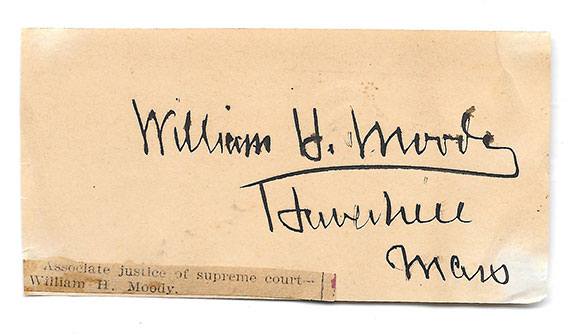 William H. Moody
Haverhill
Mass
Associate justice of supreme court—
William H. Moody.